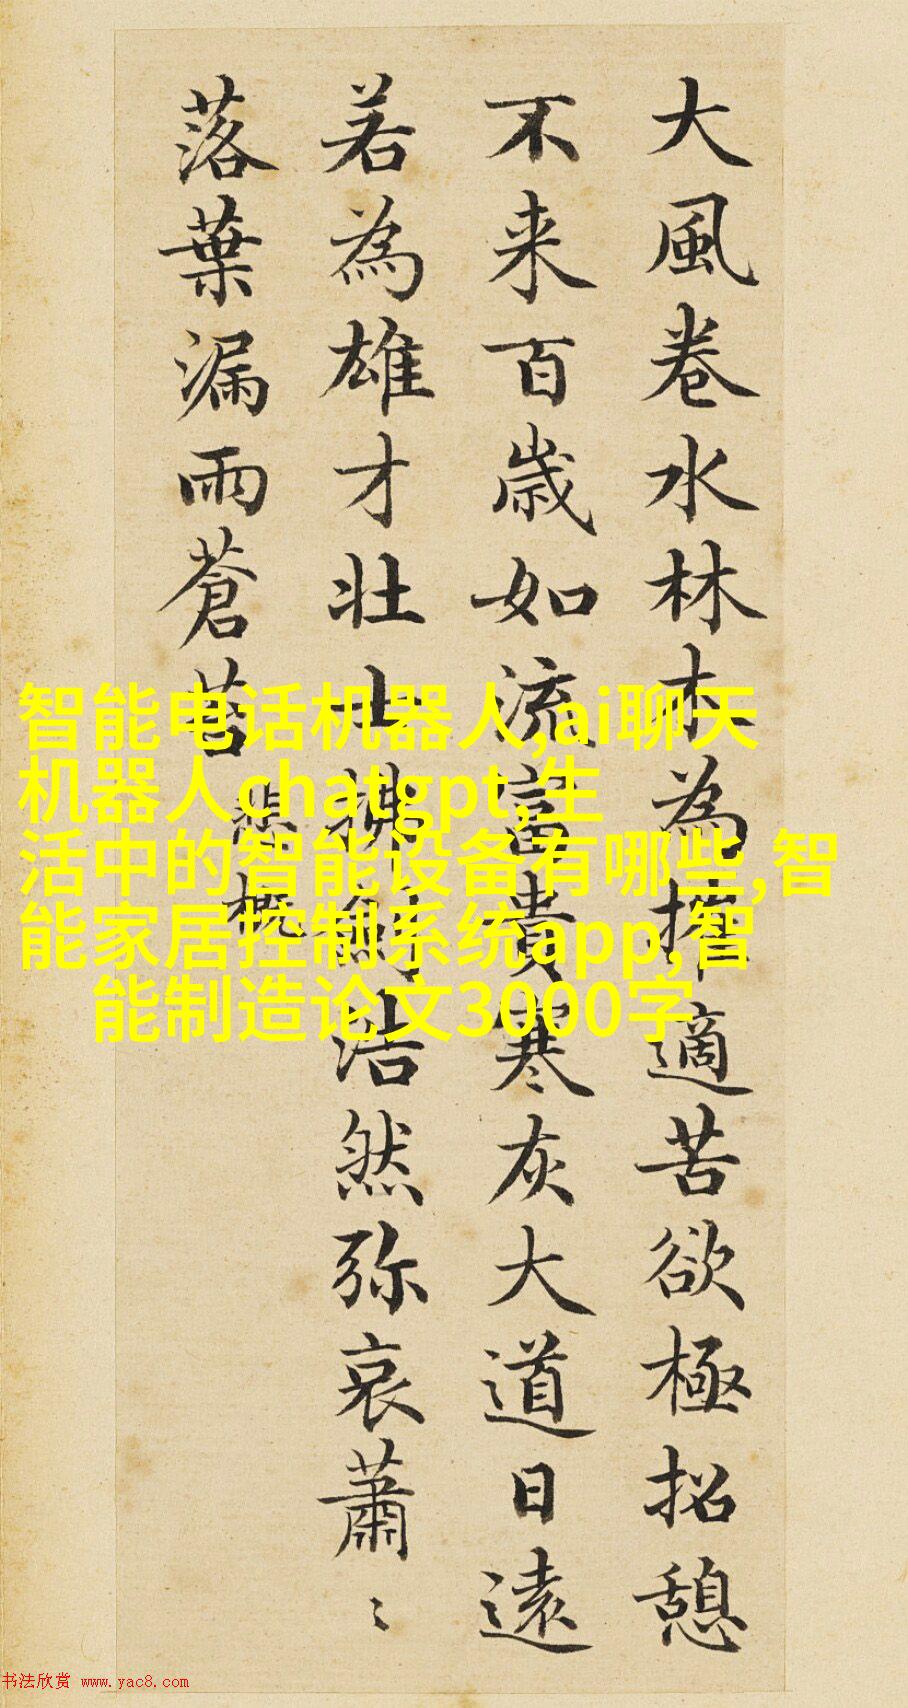 大風卷水林木為摧適苦欲極招憩
不来百歲如流富貴寒灰大道日遠
若為雄才壯士拂劍浩然弥哀蕭〻
落葉漏雨蒼苔
悲概
智能电话机器人,ai聊天
机器人chatgpt,生
活中的智能设备有哪些,智
能家居控制系统app,智
能制造论文3000字
书法欣赏 www.yac8.com